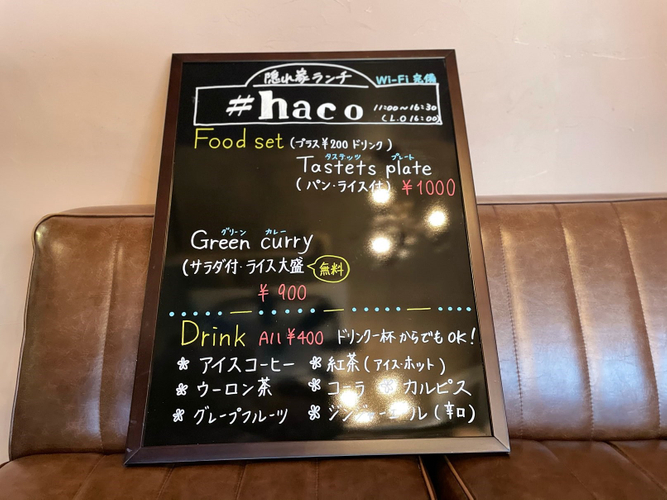 隠れ家ランチ
Wi-Fi 完備
#haco 11:00〜16:30
(L.O 16:00)
Food set (プラス¥200 ドリンク)
タステッツ プレート
Tastets plate
(パン・ライス付) ¥1000
グリーン カレー
Green curry
(サラダ付・ライス大盛 無料)
¥900
Drink All ¥400 ドリンク一杯からでもOK!
アイスコーヒー 紅茶(アイス・ホット)
ウーロン茶 コーラ カルピス
グレープフルーツ ジンジャーエール(辛口)